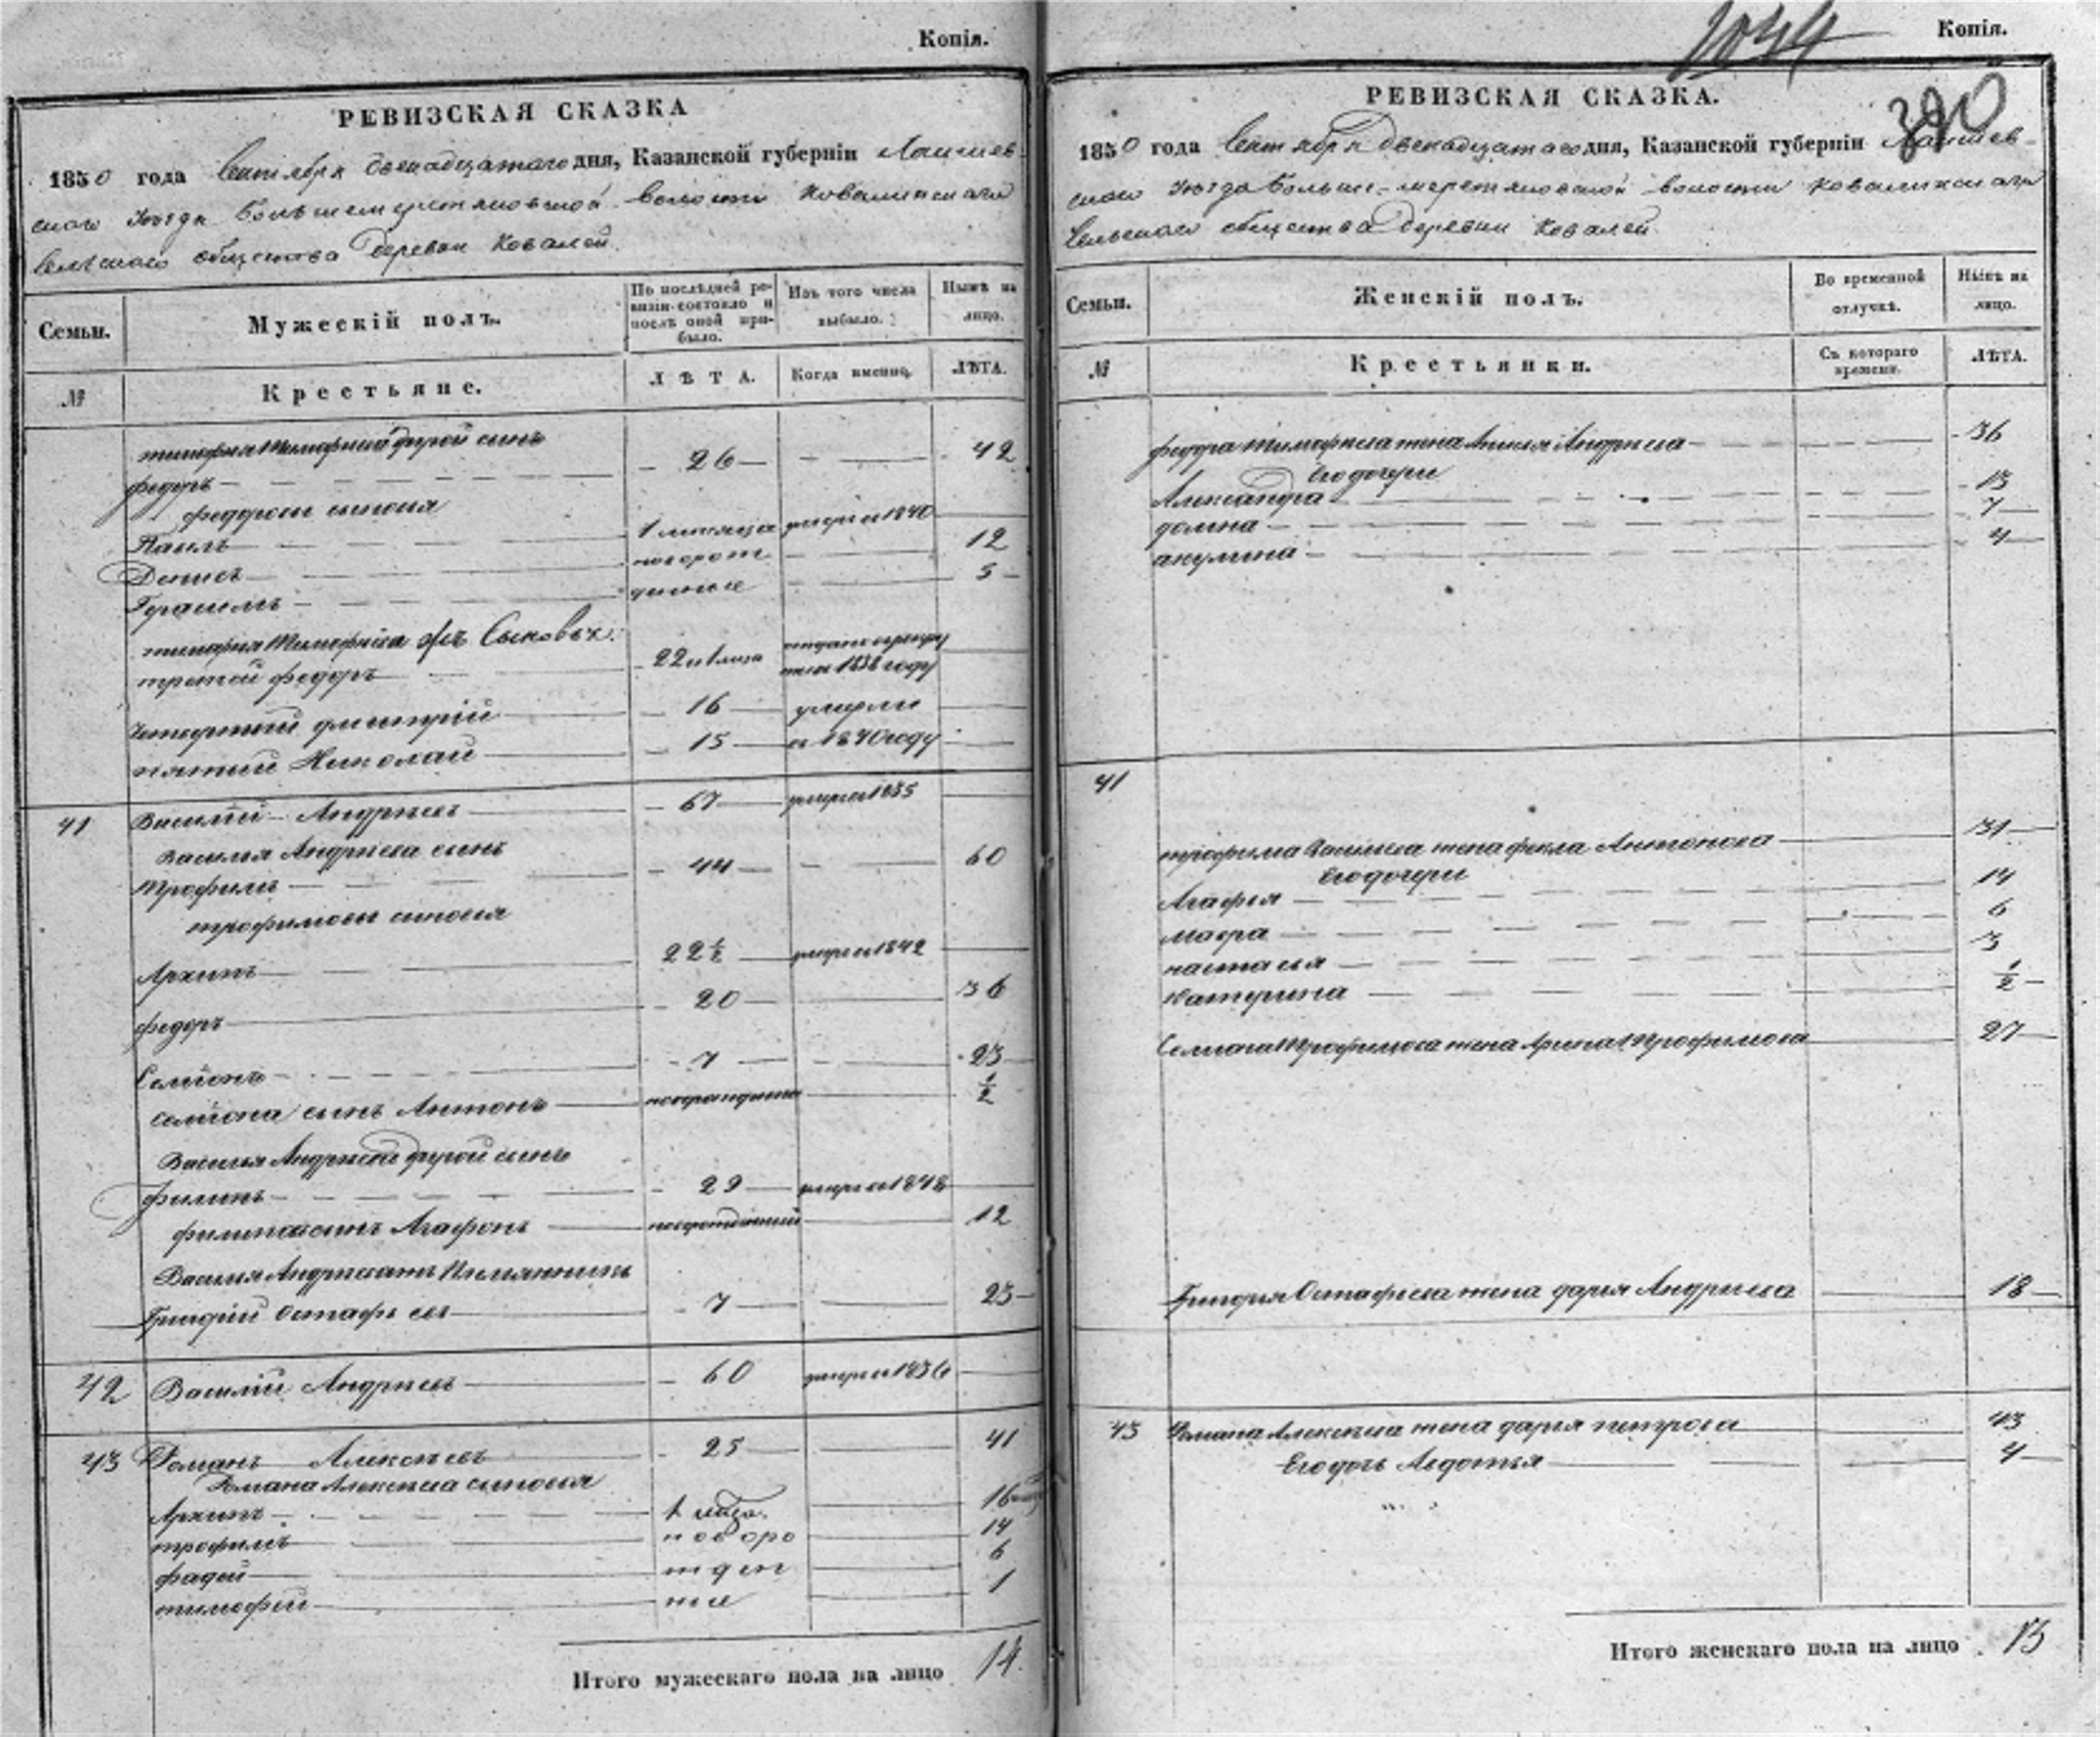 Копія.
РЕВИЗСКАЯ СКАЗКА
1850 года Сентября двенадцатаго дня, Казанской губерніи Лаишев-
скаго Уѣзда Большемеретяковской волости Ковалинскаго
Сельскаго общества Деревни Ковалей.
Семьи. Мужескій полъ. По послѣдней ревизіи состояло и послѣ оной прибыло. Изъ того числа выбыло. Нынѣ на лицо.
№ Крестьяне. ЛѢТА. Когда именно. ЛѢТА.
Тимофеева другой сынъ
федоръ 26 42
федоровы сыновья
Павелъ 1 месяца умеръ 1840
Денисъ новорож 12
Герасимъ денные 5
Тимофеева Сыновья:
третий федоръ 22 1838 году
Четвертый дмитрій 16 умерли
пятый Николай 15 в 1840 году
41 Василій Андреевъ 67 умеръ 1835
Василья Андреева сынъ
трофимъ 44 60
трофимовы сыновья
Архипъ 22½ умеръ 1842
федоръ 20 36
Семіонъ 7 23
Семіона сынъ Антонъ новорожденный ½
Василья Андреева другой сынъ
филипъ 29 умеръ 1848
филипа сынъ Агафонъ новорожденный 12
Василья Андреева Племянникъ
Григорій Остафьевъ 7 23
42 Василій Андреевъ 60 умеръ 1836
43 Романъ Алексеевъ 25 41
Романа Алексеева сыновья
Архипъ 1 меся. 16
трофимъ новоро 14
фадей жден 6
тимофей ные 1
Итого мужескаго пола на лицо 14
Копія.
1044
390
РЕВИЗСКАЯ СКАЗКА.
1850 года Сентября Двенадцатаго дня, Казанской губерніи Лаишев-
скаго Уѣзда Больше-меретяковской волости Ковалинскаго
Сельскаго общества Деревни Ковалей
Семьи. Женскій полъ. Во временной отлучкѣ. Нынѣ на лицо.
№ Крестьянки. Съ котораго времени. ЛѢТА.
федора Тимофеева жена Андреева 36
Его дочери
Александра 13
домна 7
акулина 4
41
трофима Васильева жена фекла Антонова 31
Его дочери
Агафья 14
мавра 6
настасья 3
Катерина ½
Семиона Трофимова жена Арина Трофимова 27
Григорья Остафьева жена дарья Андреева 18
43 Романа Алексеева жена дарья петрова 43
Его дочь Авдотья 4
Итого женскаго пола на лицо 13